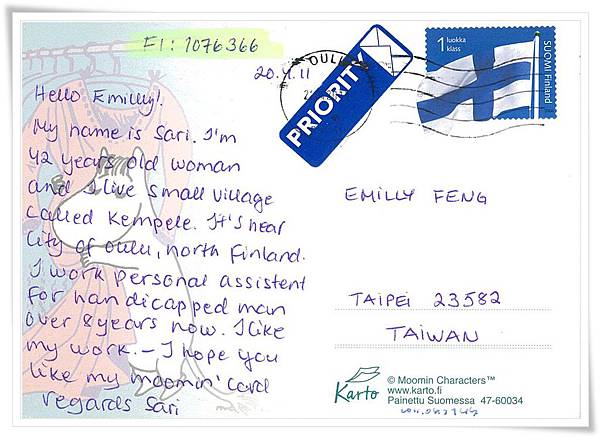 FI: 1076366
20.4.11
Hello Emilly!
My name is Sari. I'm
42 years old woman
and I live small village
called Kempele. It's near
City of Oulu, north Finland.
I work personal assistent
for handicapped man
over 8 years now. I like
my work. – I hope you
like my moomin' card
regards Sari
OULU
PRIORITY
1 luokka
klass
SUOMI Finland
EMILLY FENG
TAIPEI 23582
TAIWAN
Karto
© Moomin Characters™
www.karto.fi
Painettu Suomessa 47-60034